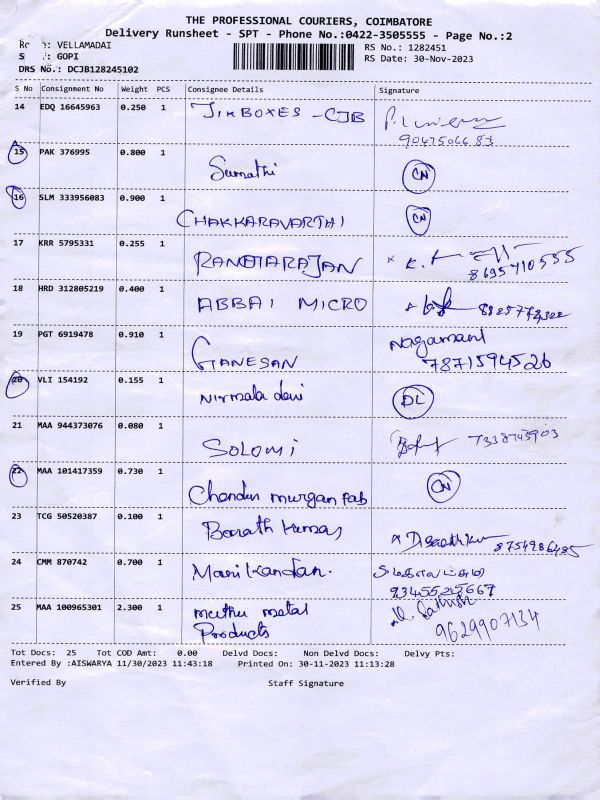 THE PROFESSIONAL COURIERS, COIMBATORE
Delivery Runsheet - SPT - Phone No.:0422-3505555 - Page No.:2
VELLAMADAI RS No.: 1282451
: GOPI RS Date: 30-Nov-2023
DRS No.: DCJB128245102
S No Consignment No Weight PCS Consignee Details Signature
14 EDQ 16645963 0.250 1 JINBOXES - CJB
9047506683
15 PAK 376995 0.800 1 Sumathi CN
16 SLM 333956083 0.900 1 CHAKKARAVARTHI CN
17 KRR 5795331 0.255 1 RANGARAJAN 8695710555
18 HRD 312805219 0.400 1 ABBAI MICRO
19 PGT 6919478 0.910 1 GANESAN Nagamani
7871594526
20 VLI 154192 0.155 1 Nirmala devi DL
21 MAA 944373076 0.080 1 SOLOMI 7338745903
22 MAA 101417359 0.730 1 Chandru murgan fab CN
23 TCG 50520387 0.100 1 Barath Kumar 8754986485
24 CMM 870742 0.700 1 Manikandan.
9345525667
25 MAA 100965301 2.300 1 muthu metal
Products 9629907134
Tot Docs: 25 Tot COD Amt: 0.00 Delvd Docs: Non Delvd Docs: Delvy Pts:
Entered By :AISWARYA 11/30/2023 11:43:18 Printed On: 30-11-2023 11:13:28
Verified By Staff Signature